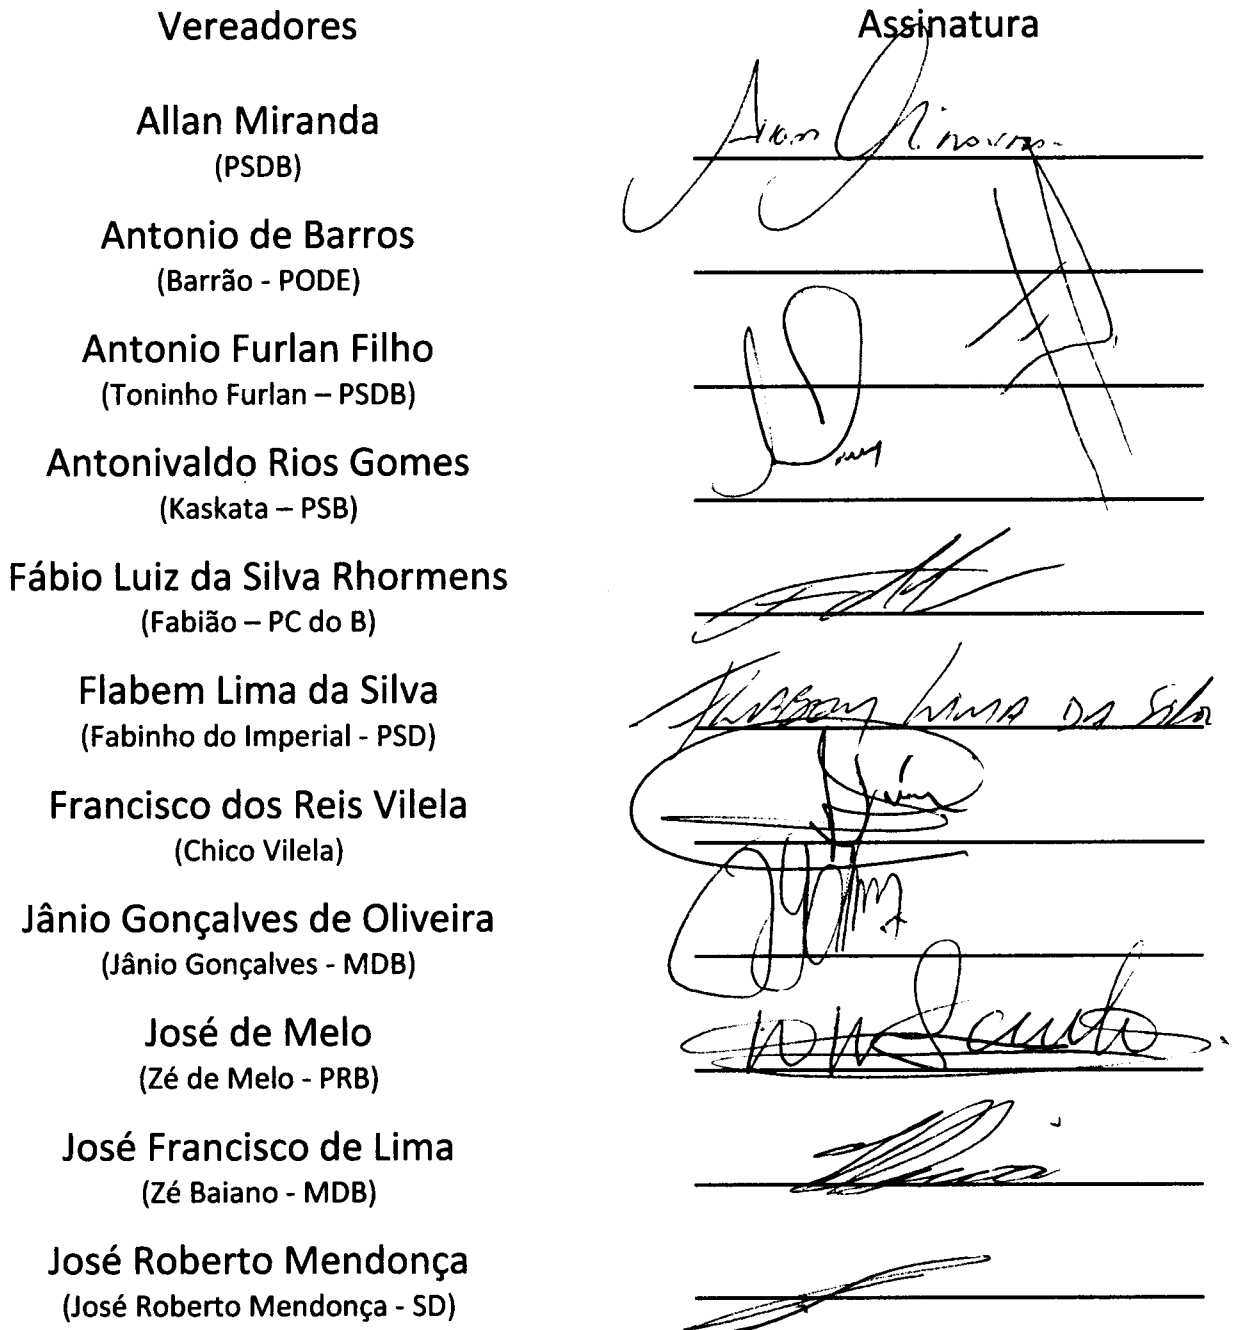 Vereadores Assinatura
Allan Miranda
(PSDB)
Antonio de Barros
(Barrão - PODE)
Antonio Furlan Filho
(Toninho Furlan – PSDB)
Antonivaldo Rios Gomes
(Kaskata – PSB)
Fábio Luiz da Silva Rhormens
(Fabião – PC do B)
Flabem Lima da Silva
(Fabinho do Imperial - PSD)
Lima da Silva
Francisco dos Reis Vilela
(Chico Vilela)
Jânio Gonçalves de Oliveira
(Jânio Gonçalves - MDB)
José de Melo
(Zé de Melo - PRB)
José Francisco de Lima
(Zé Baiano - MDB)
José Roberto Mendonça
(José Roberto Mendonça - SD)